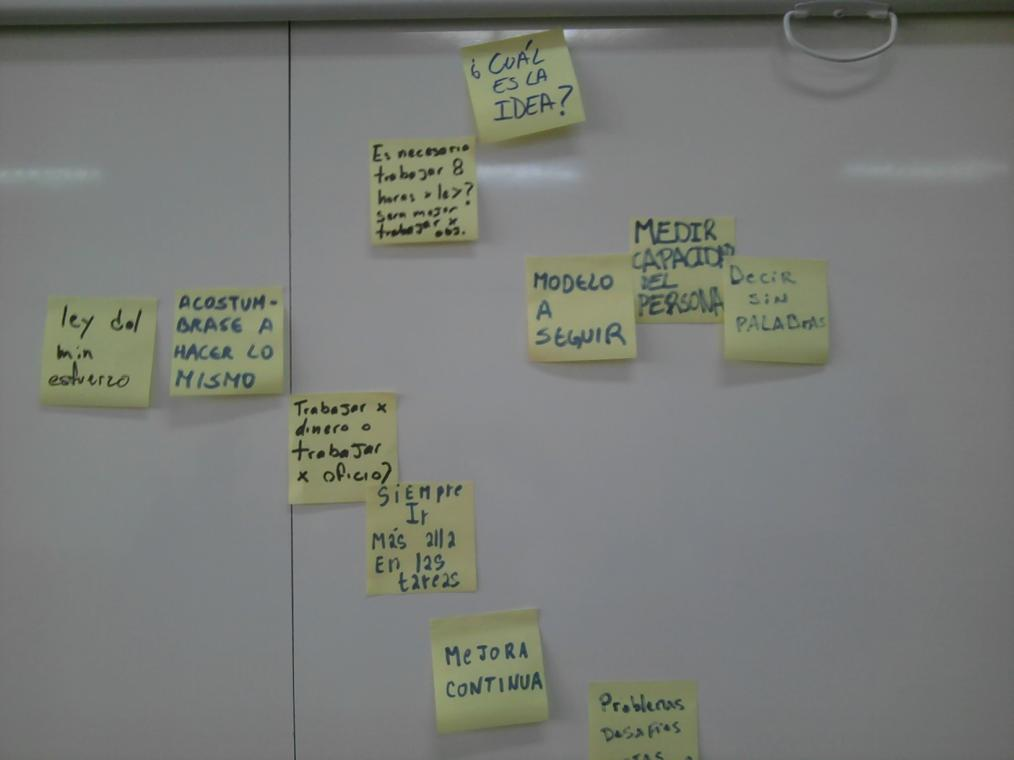 ¿CUÁL
ES LA
IDEA?
Es necesario
trabajar 8
horas x ley?
sera mejor
trabajar x
obj.
MEDIR
CAPACIDA
DEL
PERSONA
MODELO
A
SEGUIR
DeciR
SiN
PALABRAS
ley del
min
esfuerzo
ACOSTUM-
BRASE A
HACER LO
MISMO
Trabajar x
dinero o
trabajar
x oficio?
SiEMpre
Ir
Más alla
En las
tareas
MeJORA
CONTINUA
Problemas
DesAFios